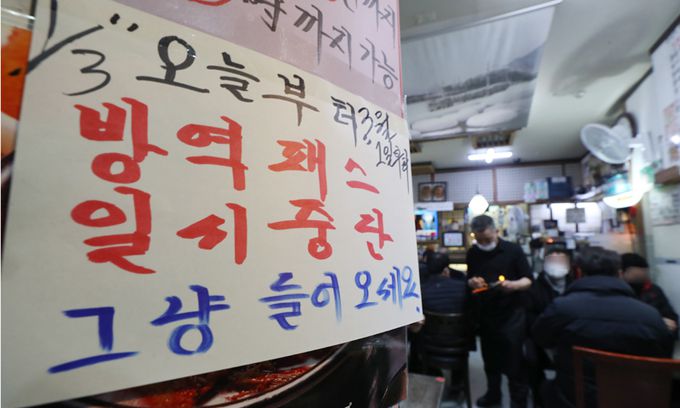 시까지 가능
3/1 오늘부터 3월 1일
방역패스
일시중단
그냥 들어오세요.